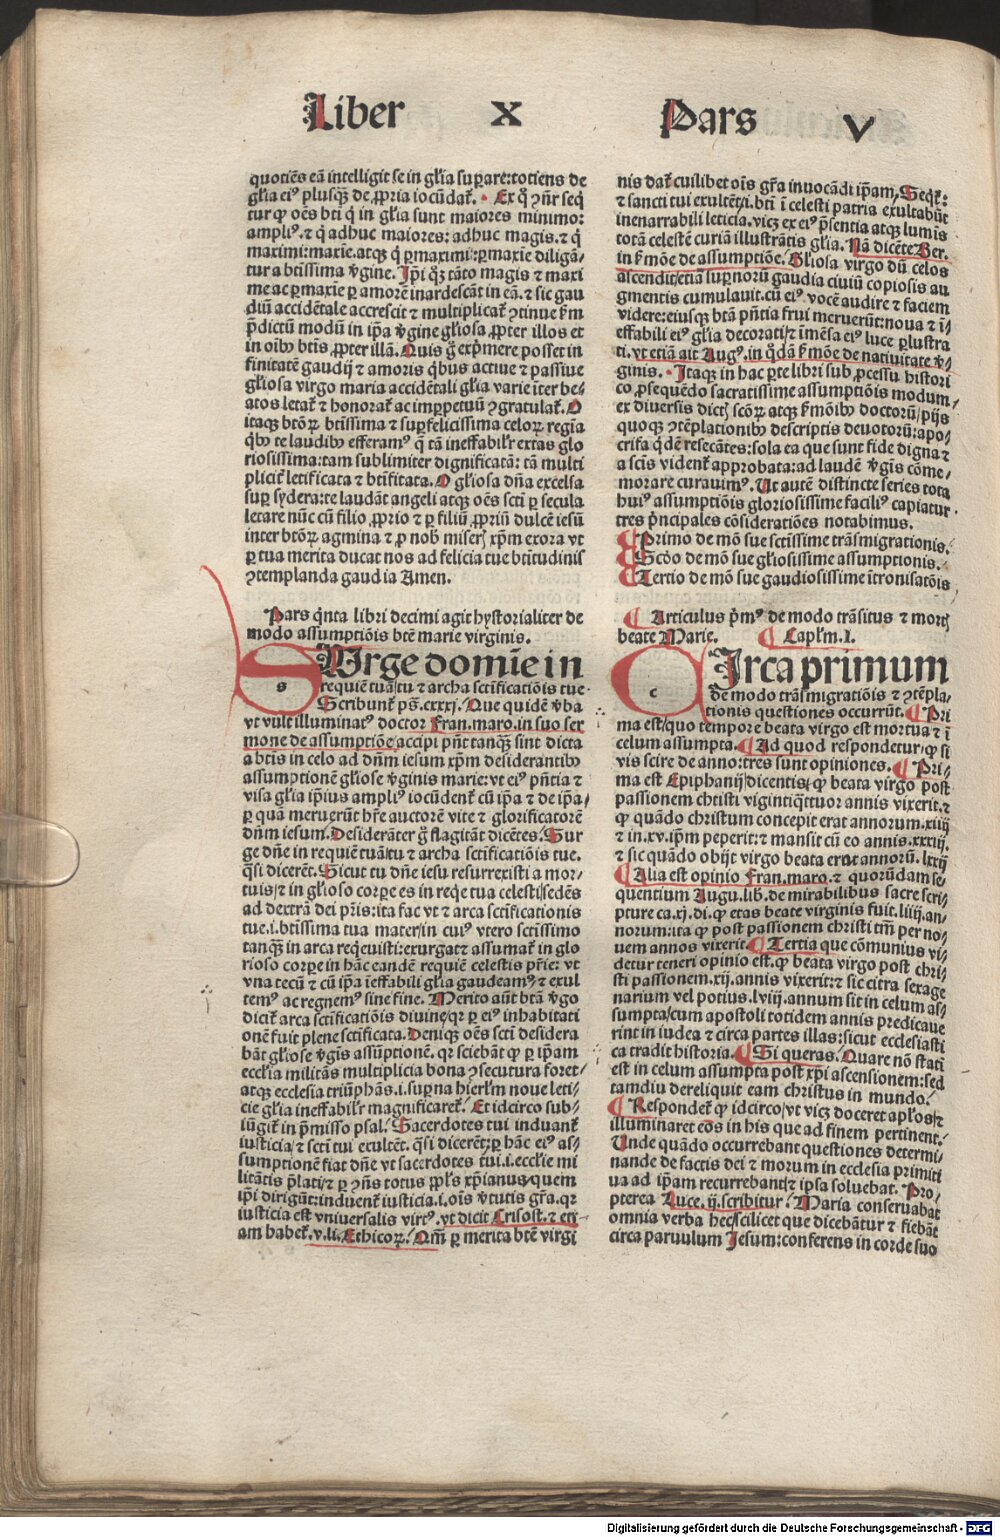 Liber X Pars V
quotiēs eā intelligit se in gl'ia superare: totiens de
gl'ia ei⁹ plusq̄ꝫ de ꝓpria iocūdat̄. Ex q̊ ꝯn̄r seq̄
tur ꝙ oēs bti q̇ in gl'ia sunt maiores minimo:
ampli⁹. ⁊ q̇ adhuc maiores: adhuc magis. ⁊ q̇
maximi: maxīe. atqꝫ q̇ ꝑmaximi: ꝑmaxīe diligā-
tur a btīssima v̄gine. Ip̄i qꝫ tāto magis ⁊ maxi
me ac ꝑmaxīe ꝑ amorē inardescāt in eā. ⁊ sic gau
diū accidētale accrescit ⁊ multiplicat̄ ꝯtinue ẜm
p̄dictū modū in ip̄a v̄gine gl'iosa ꝓpter illos et
in oībꝫ btīs ꝓpter illā. Quis g̊ exp̄mere posset in
finitatē gaudij ⁊ amoris q̇bus actiue ⁊ passiue
gl'iosa virgo maria accidētali gl'ia varie īter be-
atos letat̄ ⁊ honorat̄ ac imꝑpetuū ꝯgratulat̄. O
itaqꝫ btōꝝ btīssima ⁊ suꝑfelicissima celoꝝ regīa
q̇bꝫ te laudibꝫ efferam⁹ q̄ tā ineffabil'r extas glo
riosissima: tam sublimiter dignificata: tā multi
plicit̄ letificata ⁊ btīficata. O gl'iosa dn̄a excelsa
suꝑ sydera: te laudāt angeli atqꝫ oēs scti ꝑ secula
letare nūc cū filio ꝓprio ⁊ ꝑ filiū ꝓpriū dulcē iesū
inter btōꝝ agmina ⁊ ꝓ nob̄ miser̄ xp̄m exora vt
ꝑ tua merita ducat nos ad felicia tue btītudinis
ꝯtemplanda gaudia Amen.
Pars q̇nta libri decimi agit hystorialiter de
modo assumptiōis btē marie virginis.
SUrge domīe in
requiē tuā/tu ⁊ archa sctificatiōis tue.
Scribunt̄ ps̄. cxxxj. Que quidē v̄ba
vt vult illuminat⁹ doctor Fran. maro. in suo ser
mone de assumptiōe/accipi pn̄t tanq̄ꝫ sint dicta
a btīs in celo ad dn̄m iesum xp̄m desiderantibꝫ
assumptionē gl'iose v̄ginis marie: vt ei⁹ pn̄tia ⁊
visa gl'ia ip̄ius ampli⁹ iocūdent̄ cū ip̄a ⁊ de ip̄a/
ꝑ quā meruerūt hr̄e auctorē vite ⁊ glorificatorē
dn̄m iesum. Desiderāter g̊ flagitāt dicētes. Sur
ge dn̄e in requiē tuā/tu ⁊ archa sctificatiōis tue.
q̄si dicerēt. Sicut tu dn̄e iesu resurrexisti a mor-
tuis/⁊ in gl'ioso corꝑe es in req̄e tua celesti/sedēs
ad dextrā dei pr̄is: ita fac vt ⁊ arca sctificationis
tue. i. btīssima tua mater/in cui⁹ vtero sctīssimo
tanq̄ꝫ in arca req̇euisti: exurgat ⁊ assumat̄ in glo
rioso corꝑe in hāc eandē requiē celestis pr̄ie: vt
vna tecū ⁊ cū ip̄a īeffabili gl'ia gaudeam⁹ ⁊ exul
tem⁹ ac regnem⁹ sine fine. Merito aūt btā v̄go
dicit̄ arca sctificatiōis diuine/qr ꝑ ei⁹ inhabitati
onē fuit plene sctificata. Deniqꝫ oēs scti desidera
bāt gl'iose v̄gis assūptionē. qr sciebāt ꝙ ꝑ ip̄am
eccl'ia militās multiplicia bona ꝯsecutura foret/
atqꝫ ecclesia triūphās. i. suꝑna hierl'm noue leti-
cie gl'ia ineffabil'r magnificaret̄. Et idcirco sub-
iūgit̄ in p̄misso psal. Sacerdotes tui induant̄
iusticiā/⁊ scti tui exultēt. q̄si dicerēt: ꝑ hāc ei⁹ as-
sumptionē fiat dn̄e vt sacerdotes tui. i. eccl'ie mi
litātis p̄lati/⁊ ꝑ ꝯn̄s totus ppl's xp̄ianus/quem
ip̄i dirigūt: induent̄ iusticia. i. oīs v̄tutis gr̄a. qr
iusticia est vniuersalis virt⁹. vt dicit Crisost. ⁊ eti-
am habet̄. v. li. Ethicoꝝ. Qm̄ ꝑ merita btē virgi
nis dat̄ cuilibet oīs gr̄a inuocādi ip̄am. Seqt̄:
⁊ sancti tui exultēt/i. btī ī celesti patria exultabūt
inenarrabili leticia. vicꝫ ex ei⁹ p̄sentia atqꝫ lumīs
totā celestē curiā illustrātis gl'ia. Nā dicēte Ber.
in ẜmōe de assumptiōe. Gl'iosa virgo dū celos
ascendit: etiā suꝑnoꝝ gaudia ciuiū copiosis au
gmentis cumulauit. cū ei⁹ vocē audire ⁊ faciem
videre: eiusqꝫ btā pn̄tia frui meruerūt: noua ⁊ ī-
effabili ei⁹ gl'ia decorati/⁊ īmēsa ei⁹ luce ꝑlustra
ti. vt etiā ait Aug⁹. in q̇dā ẜmōe de natiuitate v̄-
ginis. Itaqꝫ in hac ꝑte libri sub ꝓcessu histori
co ꝓsequēdo sacratissime assumptiōis modum/
ex diuersis dict̄ scōꝝ atqꝫ ẜmōibꝫ doctorū/pijs
quoqꝫ ꝯtēplationibꝫ descriptis deuotorū: apo-
crifa q̇dē resecātes: sola ea que sunt fide digna ⁊
a scīs vident̄ approbata: ad laudē v̄gis cōme-
morare curauim⁹. Ut autē distincte series tota
hui⁹ assumptiōis gloriosissime facili⁹ capiatur.
tres p̄ncipales cōsideratiōes notabimus.
Primo de mō sue sctīssime trāsmigrationis.
Scdo de mō sue gl'iosissime assumptionis.
Tertio de mō sue gaudiosissime ītronisatōis
Articulus p̄m⁹ de modo trāsitus ⁊ mort̄
beate Marie. Capl'm. I.
CIrca primum
de modo trāsmigratiōis ⁊ ꝯtēpla-
tionis questiones occurrūt. Pri
ma est/quo tempore beata virgo est mortua ⁊ ī
celum assumpta. Ad quod respondetur/ꝙ si
vis scire de anno: tres sunt opiniones. Pri-
ma est Epiphanij/dicentis/ꝙ beata virgo post
passionem christi vigintiq̄ttuor annis vixerit. ⁊
ꝙ quādo christum concepit erat annorum. xiiij
⁊ in. xv. ip̄m peperit: ⁊ mansit cū eo annis. xxxiij.
⁊ sic quādo obijt virgo beata erat annorū. lxxij
Alia est opinio Fran. maro. ⁊ quorūdam se-
quentium Augu. lib. de mirabilibus sacre scri-
pture ca. xj. di. ꝙ etas beate virginis fuit. liiij. an-
norum: ita ꝙ post passionem christi tm̄ per no-
uem annos vixerit. Tertia que cōmunius vi-
detur teneri opinio est. ꝙ beata virgo post chri-
sti passionem. xij. annis vixerit: ⁊ sic citra sexage
narium vel potius. lviij. annum sit in celum as-
sumpta/cum apostoli totidem annis predicaue
rint in iudea ⁊ circa partes illas: sicut ecclesiasti
ca tradit historia. Si queras. Quare nō stati
est in celum assumpta post xp̄i ascensionem: sed
tamdiu dereliquit eam christus in mundo.
Respondet̄ ꝙ idcirco/vt vicꝫ doceret apl'os/⁊
illuminaret eos in his que ad finem pertinent.
Unde quādo occurrebant questiones determi-
nande de factis dei ⁊ morum in ecclesia primiti
ua ad ip̄am recurrebant/⁊ ipsa soluebat. Pro-
pterea Luce. ij. scribitur. Maria conseruabat
omnia verba hec/scilicet que dicebātur ⁊ fiebāt
circa paruulum Jesum: conferens in corde suo
Digitalisierung gefördert durch die Deutsche Forschungsgemeinschaft - DFG